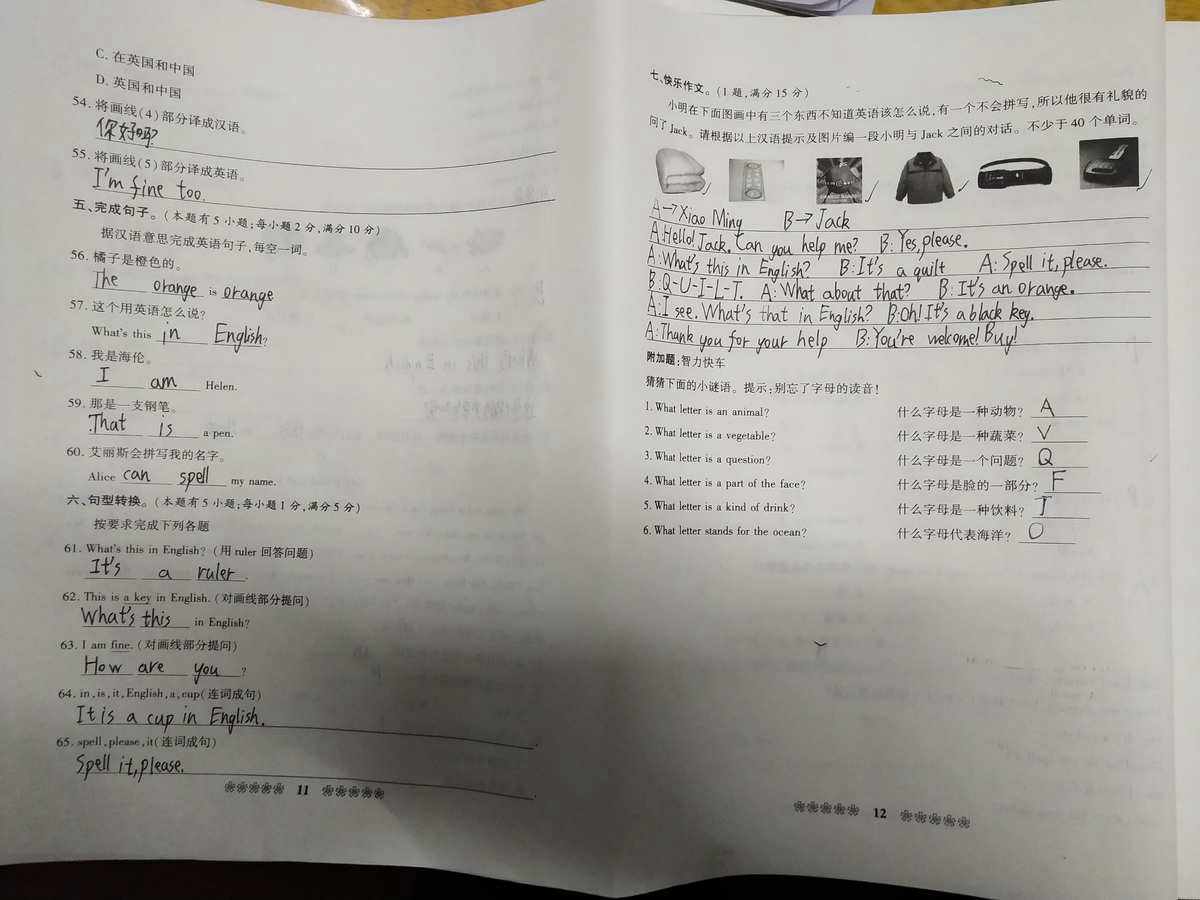 C. 在英国和中国
D. 英国和中国
54. 将画线(4)部分译成汉语。
你好吗?
55. 将画线(5)部分译成英语。
I'm fine too.
五、完成句子。(本题有5小题;每小题2分,满分10分)
据汉语意思完成英语句子,每空一词。
56. 橘子是橙色的。
The orange is orange
57. 这个用英语怎么说?
What's this in English?
58. 我是海伦。
I am Helen.
59. 那是一支钢笔。
That is a pen.
60. 艾丽斯会拼写我的名字。
Alice can spell my name.
六、句型转换。(本题有5小题;每小题1分,满分5分)
按要求完成下列各题
61. What's this in English? (用 ruler 回答问题)
It's a ruler.
62. This is a key in English. (对画线部分提问)
What's this in English?
63. I am fine. (对画线部分提问)
How are you ?
64. in,is,it,English,a,cup(连词成句)
It is a cup in English.
65. spell,please,it(连词成句)
Spell it,please.
11
七、快乐作文。(1题,满分15分)
小明在下面图画中有三个东西不知道英语该怎么说,有一个不会拼写,所以他很有礼貌的
问了Jack。请根据以上汉语提示及图片编一段小明与Jack之间的对话。不少于40个单词。
A→Xiao Ming B→Jack
A:Hello! Jack. Can you help me? B: Yes,please.
A:What's this in English? B:It's a quilt A: Spell it,please.
B:Q-U-I-L-T. A: What about that? B: It's an orange.
A:I see. What's that in English? B:Oh! It's a black key.
A:Thank you for your help B:You're welcome! Buy!
附加题:智力快车
猜猜下面的小谜语。提示:别忘了字母的读音!
1. What letter is an animal? 什么字母是一种动物? A
2. What letter is a vegetable? 什么字母是一种蔬菜? V
3. What letter is a question? 什么字母是一个问题? Q
4. What letter is a part of the face? 什么字母是脸的一部分? F
5. What letter is a kind of drink? 什么字母是一种饮料? J
6. What letter stands for the ocean? 什么字母代表海洋? O
12